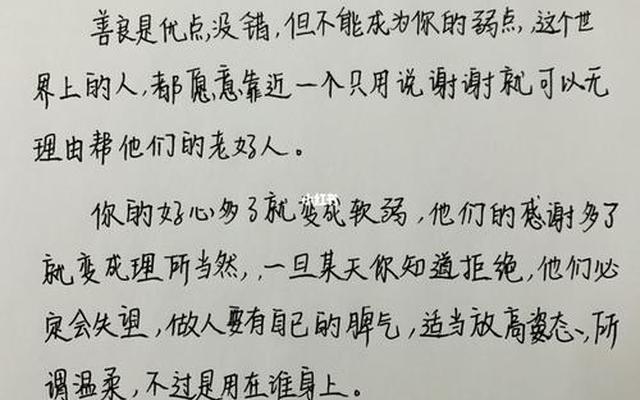 善良是优点,没错,但不能成为你的弱点,这个世
界上的人,都愿意靠近一个只用说谢谢就可以无
理由帮他们的老好人。
你的好心多了就变成软弱,他们的感谢多了
就变成理所当然,一旦某天你知道拒绝,他们必
定会失望,做人要有自己的脾气,适当放高姿态、所
谓温柔,不过是用在谁身上。
小红书